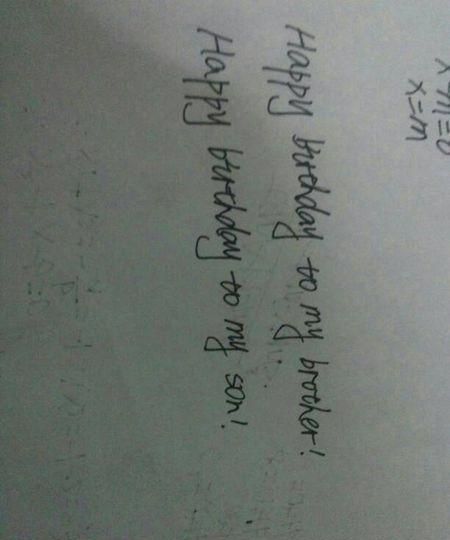 x-m=0
x=m
Happy birthday to my brother!
Happy birthday to my son!